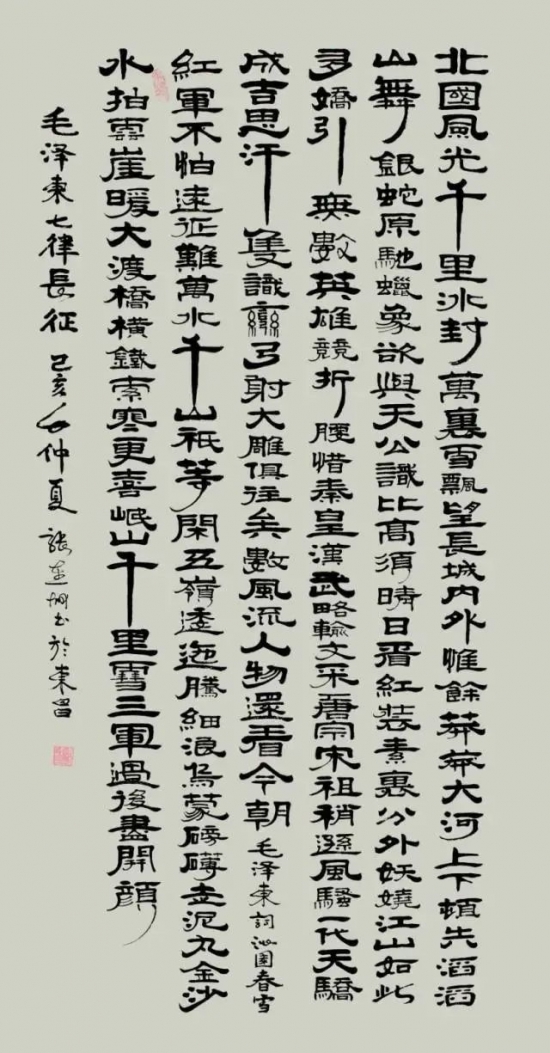 北國風光千里冰封萬裏雪飄望長城內外惟餘莽莽大河上下頓失滔滔
山舞銀蛇原馳蠟象欲與天公識比高須晴日看紅裝素裹分外妖嬈江山如此
多嬌引無數英雄競折腰惜秦皇漢武略輸文采唐宗宋祖稍遜風騷一代天驕
成吉思汗隻識彎弓射大雕俱往矣數風流人物還看今朝 毛泽東詞沁園春雪
紅軍不怕遠征難萬水千山祇等閑五嶺逶迤騰細浪烏蒙磅礴走泥丸金沙
水拍雲崖暖大渡橋橫鐵索寒更喜岷山千里雪三軍過後盡開顏
毛泽東七律長征 己亥年仲夏 張書於東昌